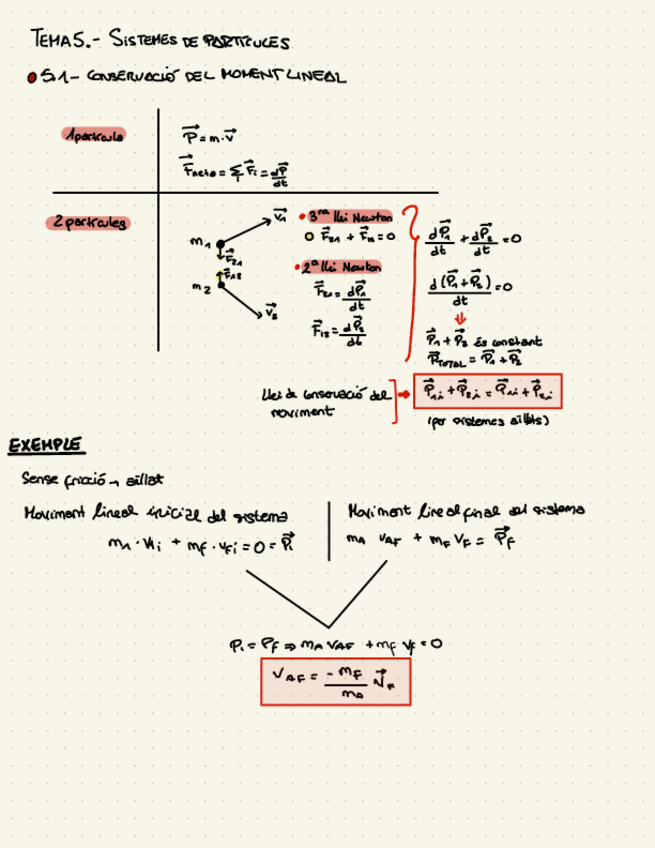 TEMA 5.- SISTEMES DE PARTÍCULES
5.1- CONSERVACIÓ DEL MOMENT LINEAL
1 partícula
P⃗ = m·v⃗
F⃗neta = Σ F⃗i = dP⃗/dt
2 partícules
m1
v⃗1
F⃗21
F⃗12
m2
v⃗2
3ra llei Newton
F⃗21 + F⃗12 = 0
2a llei Newton
F⃗21 = dP⃗1/dt
F⃗12 = dP⃗2/dt
dP⃗1/dt + dP⃗2/dt = 0
d(P⃗1+P⃗2)/dt = 0
P⃗1 + P⃗2 és constant
P⃗TOTAL = P⃗1 + P⃗2
Llei de conservació del
moviment
P⃗1i + P⃗2i = P⃗1i + P⃗2i
(per sistemes aïllats)
EXEMPLE
Sense fricció → aïllat
Moviment lineal inicial del sistema
mA · vAi + mF · vFi = 0 = P⃗i
Moviment lineal final del sistema
mA vAF + mF VF = P⃗F
Pi = PF ⇒ mA VAF + mF VF = 0
VAF = -mF/mA V⃗F